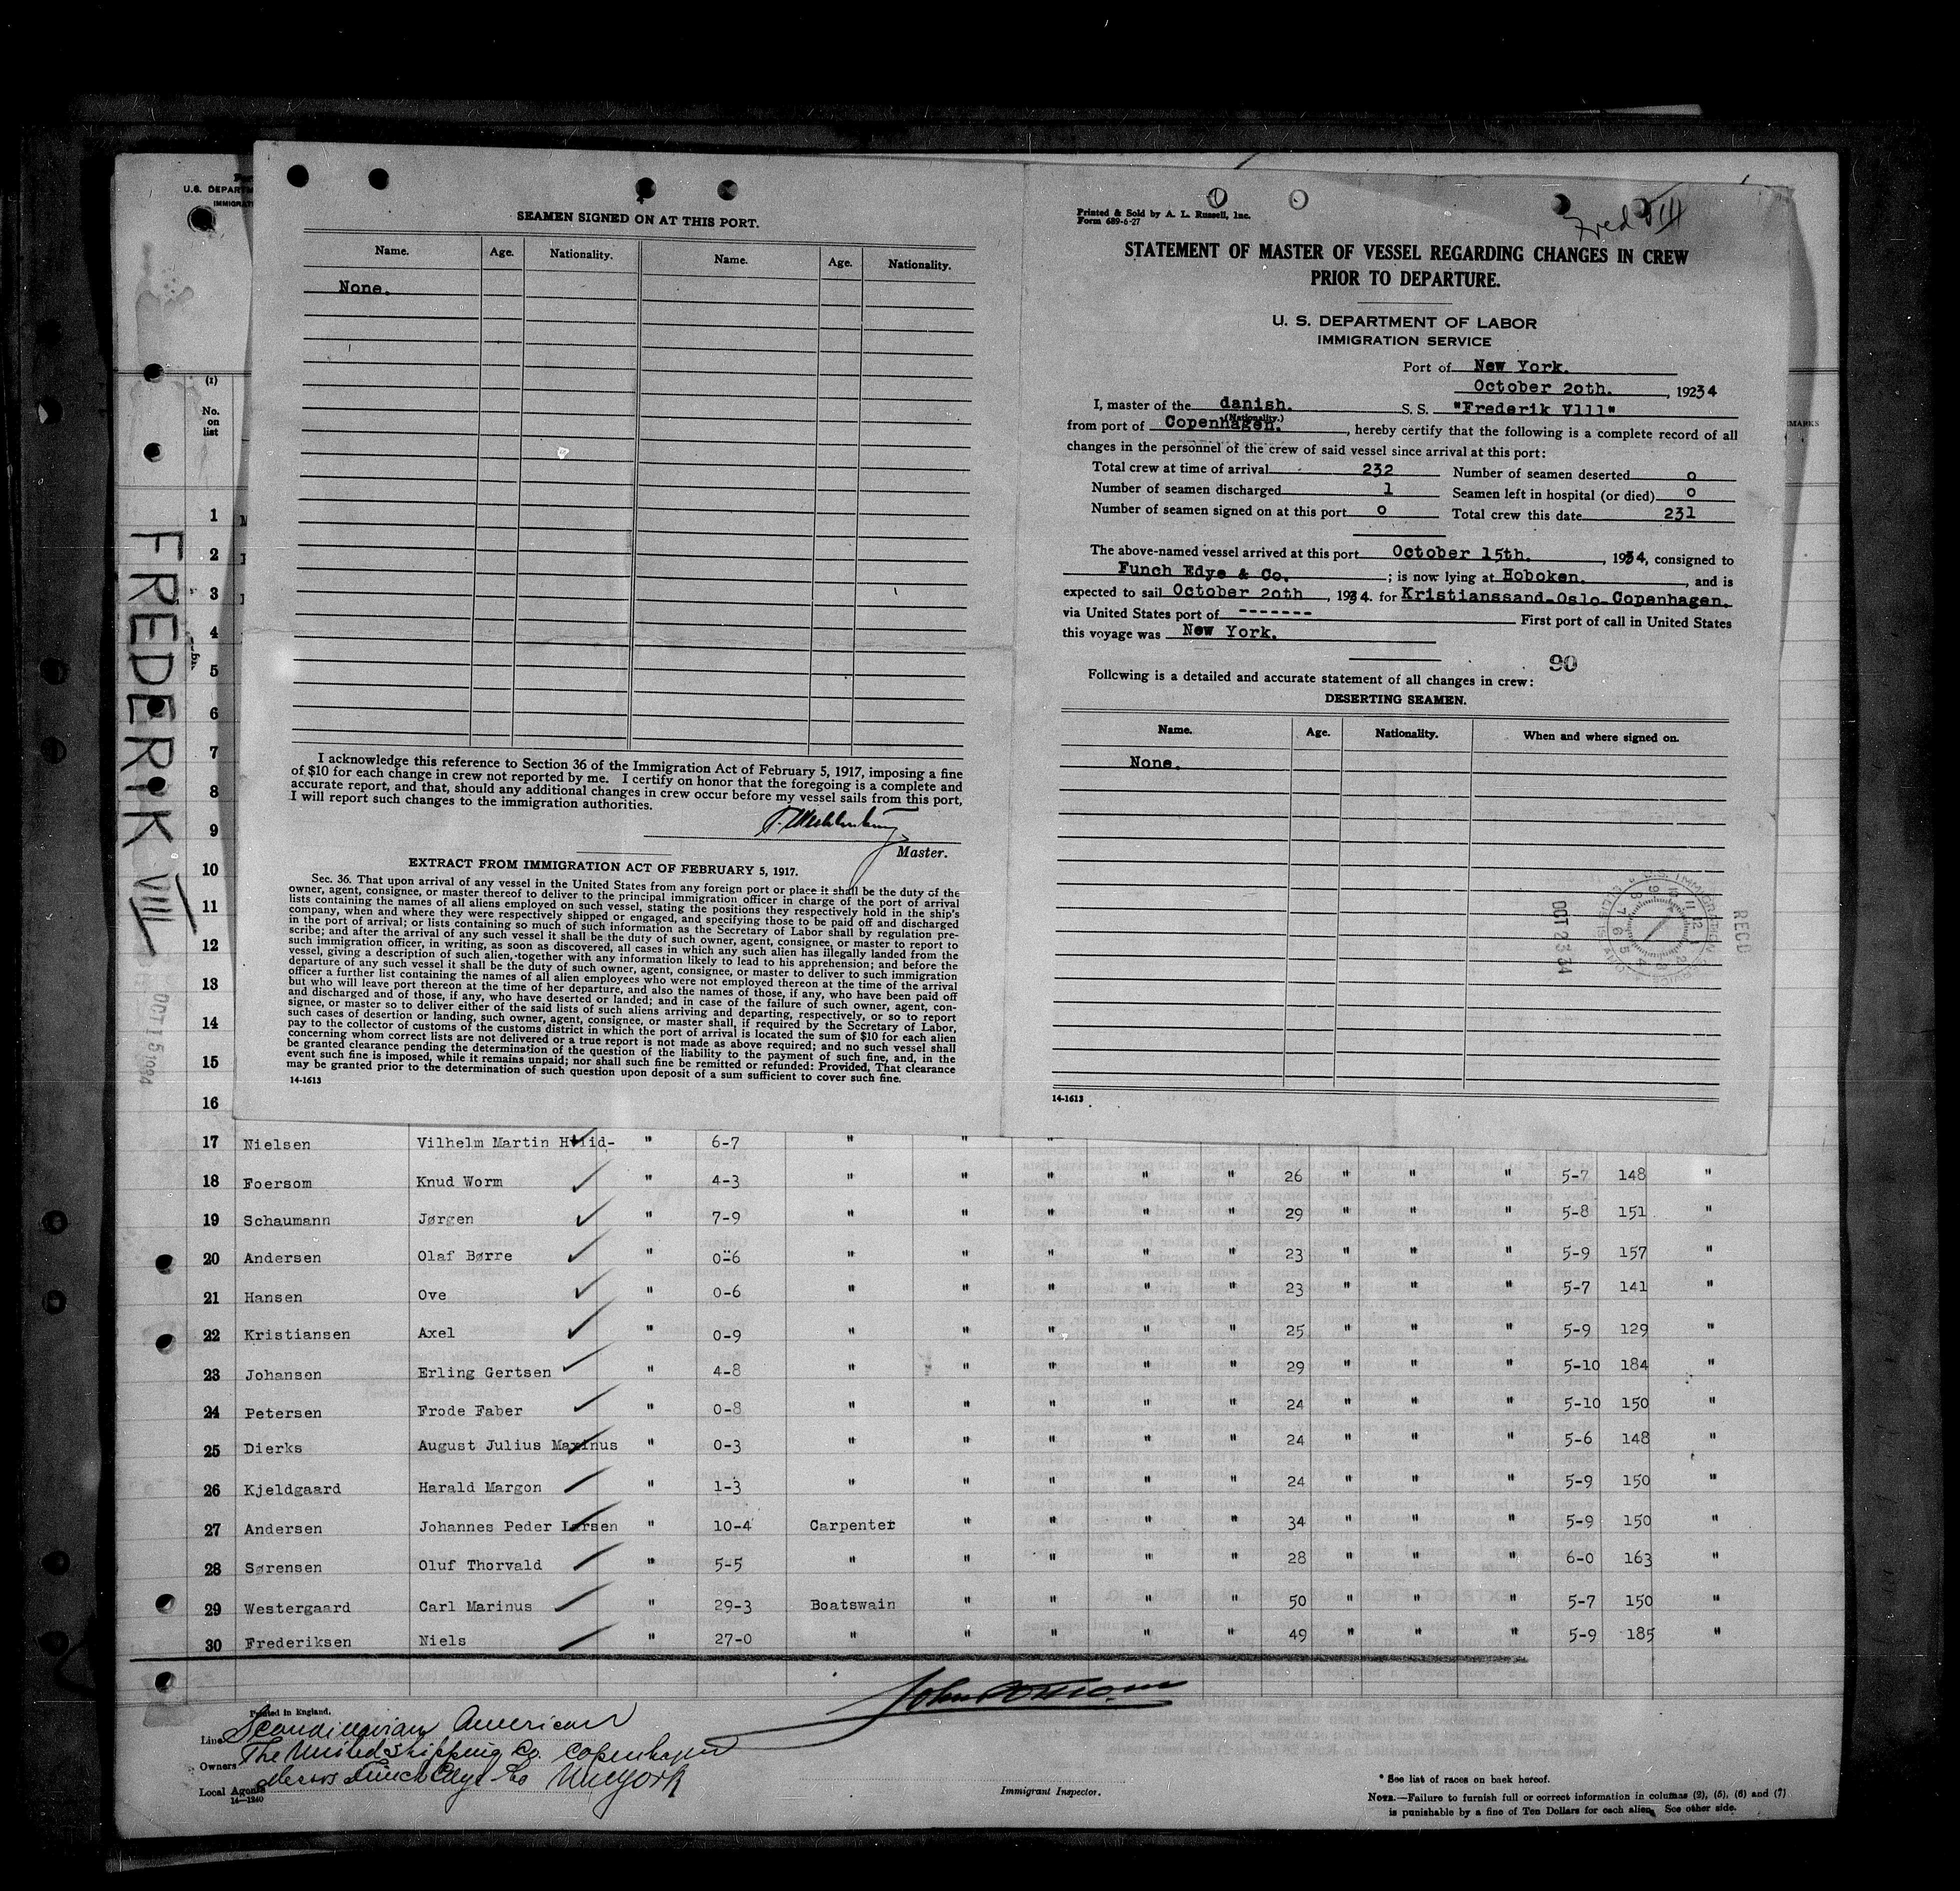 U.S. DEPART
IMMIGRA
(1)
No.
on
list
FREDERIK VIII
OCT 15 1934
SEAMEN SIGNED ON AT THIS PORT.
Name. Age. Nationality. Name. Age. Nationality.
None.
I acknowledge this reference to Section 36 of the Immigration Act of February 5, 1917, imposing a fine
of $10 for each change in crew not reported by me. I certify on honor that the foregoing is a complete and
accurate report, and that, should any additional changes in crew occur before my vessel sails from this port,
I will report such changes to the immigration authorities.
Master.
EXTRACT FROM IMMIGRATION ACT OF FEBRUARY 5, 1917.
Sec. 36. That upon arrival of any vessel in the United States from any foreign port or place it shall be the duty of the
owner, agent, consignee, or master thereof to deliver to the principal immigration officer in charge of the port of arrival
lists containing the names of all aliens employed on such vessel, stating the positions they respectively hold in the ship's
company, when and where they were respectively shipped or engaged, and specifying those to be paid off and discharged
in the port of arrival; or lists containing so much of such information as the Secretary of Labor shall by regulation pre-
scribe; and after the arrival of any such vessel it shall be the duty of such owner, agent, consignee, or master to report to
such immigration officer, in writing, as soon as discovered, all cases in which any such alien has illegally landed from the
vessel, giving a description of such alien, together with any information likely to lead to his apprehension; and before the
departure of any such vessel it shall be the duty of such owner, agent, consignee, or master to deliver to such immigration
officer a further list containing the names of all alien employees who were not employed thereon at the time of the arrival
but who will leave port thereon at the time of her departure, and also the names of those, if any, who have been paid off
and discharged and of those, if any, who have deserted or landed; and in case of the failure of such owner, agent, con-
signee, or master so to deliver either of the said lists of such aliens arriving and departing, respectively, or so to report
such cases of desertion or landing, such owner, agent, consignee, or master shall, if required by the Secretary of Labor,
pay to the collector of customs of the customs district in which the port of arrival is located the sum of $10 for each alien
concerning whom correct lists are not delivered or a true report is not made as above required; and no such vessel shall
be granted clearance pending the determination of the question of the liability to the payment of such fine, and, in the
event such fine is imposed, while it remains unpaid; nor shall such fine be remitted or refunded: Provided, That clearance
may be granted prior to the determination of such question upon deposit of a sum sufficient to cover such fine.
14-1613
Printed & Sold by A. L. Russell, Inc.
Form 689-6-27
Fred VIII
STATEMENT OF MASTER OF VESSEL REGARDING CHANGES IN CREW
PRIOR TO DEPARTURE.
U. S. DEPARTMENT OF LABOR
IMMIGRATION SERVICE
Port of New York.
October 20th. , 19234
I, master of the danish. S. S. "Frederik Vlll"
(Nationality.)
from port of Copenhagen. , hereby certify that the following is a complete record of all
changes in the personnel of the crew of said vessel since arrival at this port:
Total crew at time of arrival 232 Number of seamen deserted 0
Number of seamen discharged 1 Seamen left in hospital (or died) 0
Number of seamen signed on at this port 0 Total crew this date 231
The above-named vessel arrived at this port October 15th. , 1934, consigned to
Funch Edye & Co. ; is now lying at Hoboken. , and is
expected to sail October 20th , 1934. for Kristianssand-Oslo-Copenhagen.
via United States port of ------- First port of call in United States
this voyage was New York.
90
Following is a detailed and accurate statement of all changes in crew:
DESERTING SEAMEN.
Name. Age. Nationality. When and where signed on.
None.
RECD
OCT 23 34
14-1613
EMARKS
1
2
3
4
5
6
7
8
9
10
11
12
13
14
15
16
17 Nielsen Vilhelm Martin Hviid- " 6-7 " " "
18 Foersom Knud Worm " 4-3 " " " " " 26 " " " 5-7 148 "
19 Schaumann Jørgen " 7-9 " " " " " 29 " " " 5-8 151 "
20 Andersen Olaf Børre " 0-6 " " " " " 23 " " " 5-9 157 "
21 Hansen Ove " 0-6 " " " " " 23 " " " 5-7 141 "
22 Kristiansen Axel " 0-9 " " " " " 25 " " " 5-9 129 "
23 Johansen Erling Gertsen " 4-8 " " " " " 29 " " " 5-10 184 "
24 Petersen Frode Faber " 0-8 " " " " " 24 " " " 5-10 150 "
25 Dierks August Julius Marinus " 0-3 " " " " " 24 " " " 5-6 148 "
26 Kjeldgaard Harald Margon " 1-3 " " " " " 24 " " " 5-9 150 "
27 Andersen Johannes Peder Larsen " 10-4 Carpenter " " " " 34 " " " 5-9 150 "
28 Sørensen Oluf Thorvald " 5-5 " " " " " 28 " " " 6-0 163 "
29 Westergaard Carl Marinus " 29-3 Boatswain " " " " 50 " " " 5-7 150 "
30 Frederiksen Niels " 27-0 " " " " " 49 " " " 5-9 185 "
Printed in England.
Line Scandinavian American
Owners The United Shipping Co. Copenhagen
Local Agents Messrs Funch Edye Co New York
14-1240
Immigrant Inspector.
* See list of races on back hereof.
NOTE.—Failure to furnish full or correct information in columns (2), (5), (6) and (7)
is punishable by a fine of Ten Dollars for each alien. See other side.